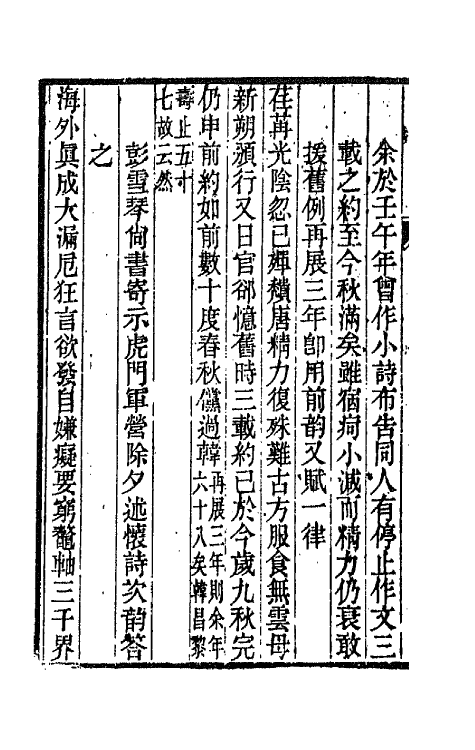 余於壬午年曾作小詩布告同人有停止作文三
載之約至今秋滿矣雖宿疴小減而精力仍衰敢
援舊例再展三年卽用前韵又賦一律
荏苒光陰忽已
唐精力復殊難古方服食無雲母
新朔頒行又日官郤憶舊時三載約已於今歲九秋完
仍申前約如前數十度春秋儻過韓再展三年則余年
六十八矣韓昌黎
壽止五寸
七故云然
彭雪琴尙書寄示虎門軍營除夕述懷詩次韵答
之
海外眞成大漏卮狂言欲發自嫌癡要窮鼇軸三千界